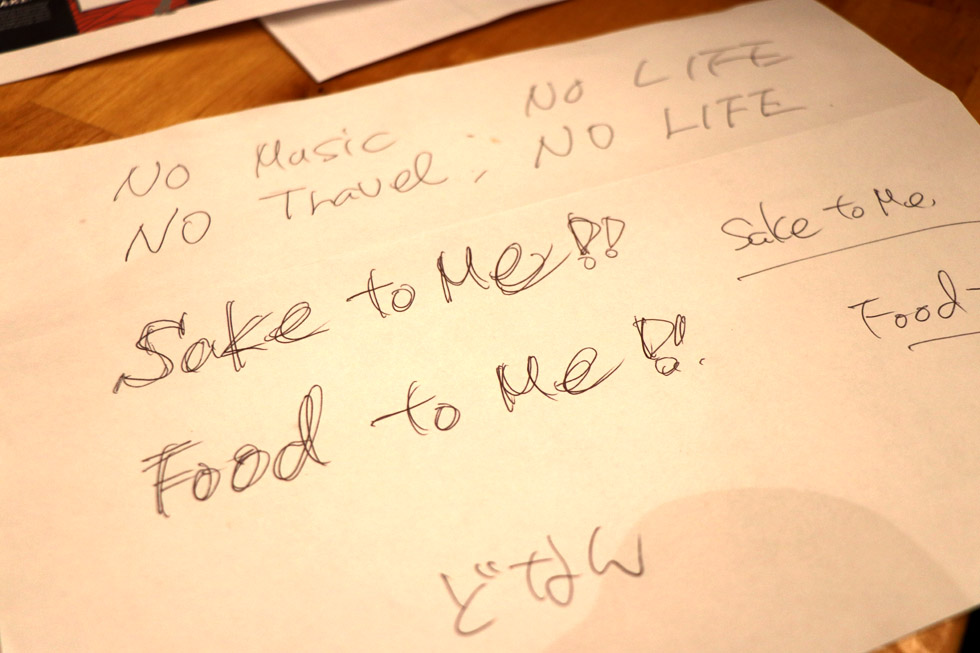 NO Music NO LIFE
NO Travel, NO LIFE
Sake to Me!!
Food to Me!!
Sake to Me
Food
どなん